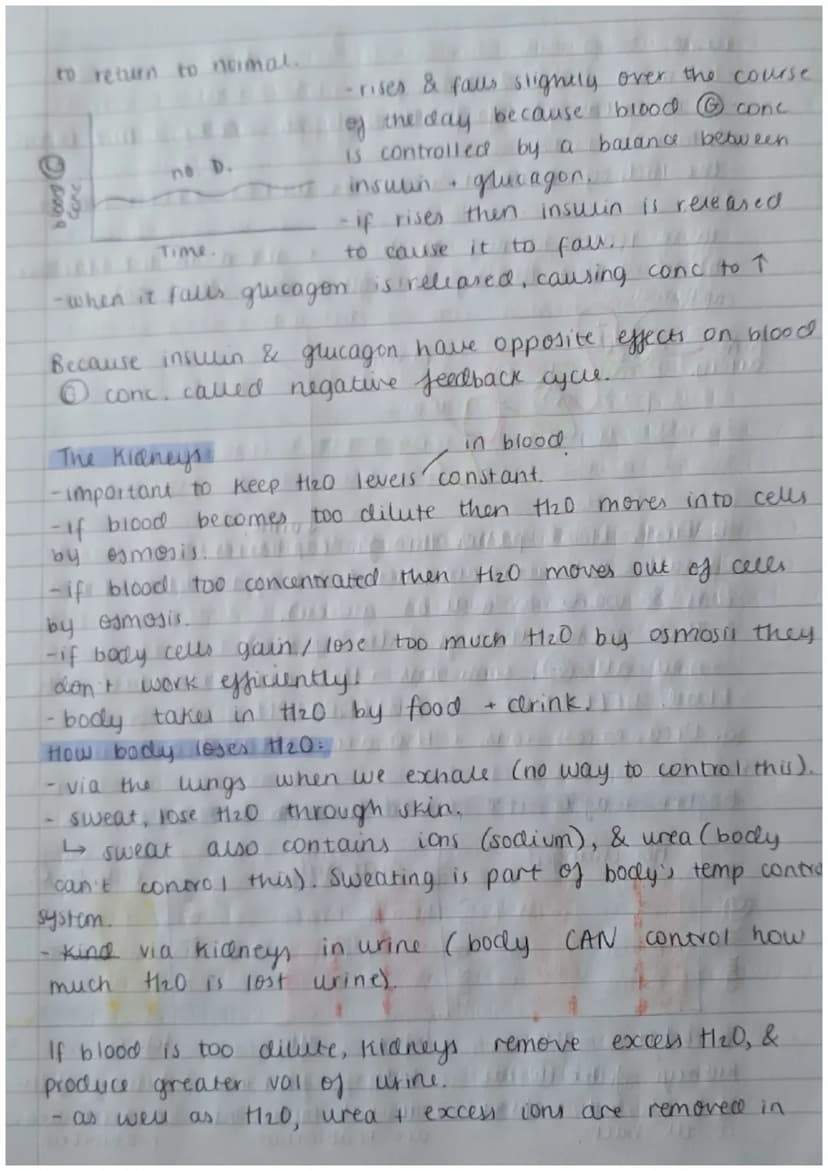 to return to normal.
-rises & falls slightly over the course
of the day because blood Ⓖ conc
is controlled by a balance between
insulin + glucagon.
no D.
Ⓖ blood
conc
Time.
-if rises then insulin is released
to cause it to fall.
-when it falls glucagon is released, causing conc to ↑
Because insulin & glucagon have opposite effects on blood
Ⓖ conc. called negative feedback cycle.
The Kidneys
in blood
-important to keep H2O levels constant.
-if blood becomes too dilute then H2O moves into cells
by osmosis.
-if blood too concentrated then H2O moves out of cells
by osmosis.
-if body cells gain/lose too much H2O by osmosis they
don't work efficiently!
-body takes in H2O by food + drink.
How body loses H2O:
- via the lungs when we exhale (no way to control this).
- sweat, lose H2O through skin.
↳ sweat also contains ions (sodium), & urea (body
can't control this). Sweating is part of body's temp contro
system.
- kind via kidneys in urine (body CAN control how
much H2O is lost urine).
If blood is too dilute, kidneys remove excess H2O, &
produce greater vol of urine.
- as well as H2O, urea + excess ions are removed in